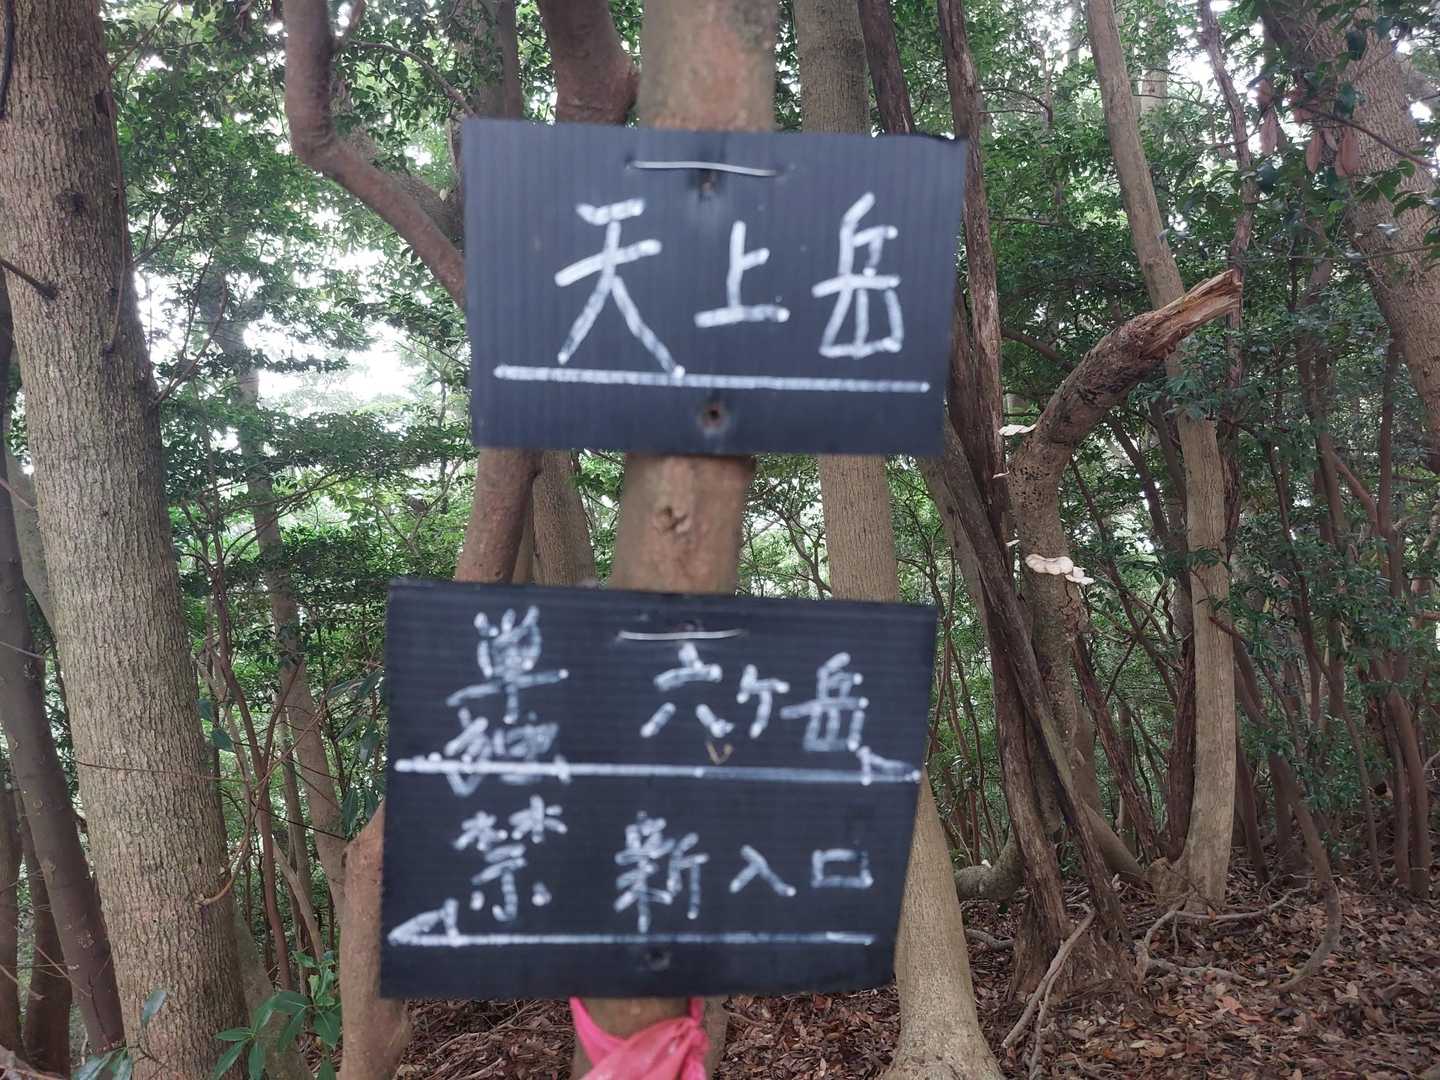 天上岳
六ケ岳
新入口
単独禁